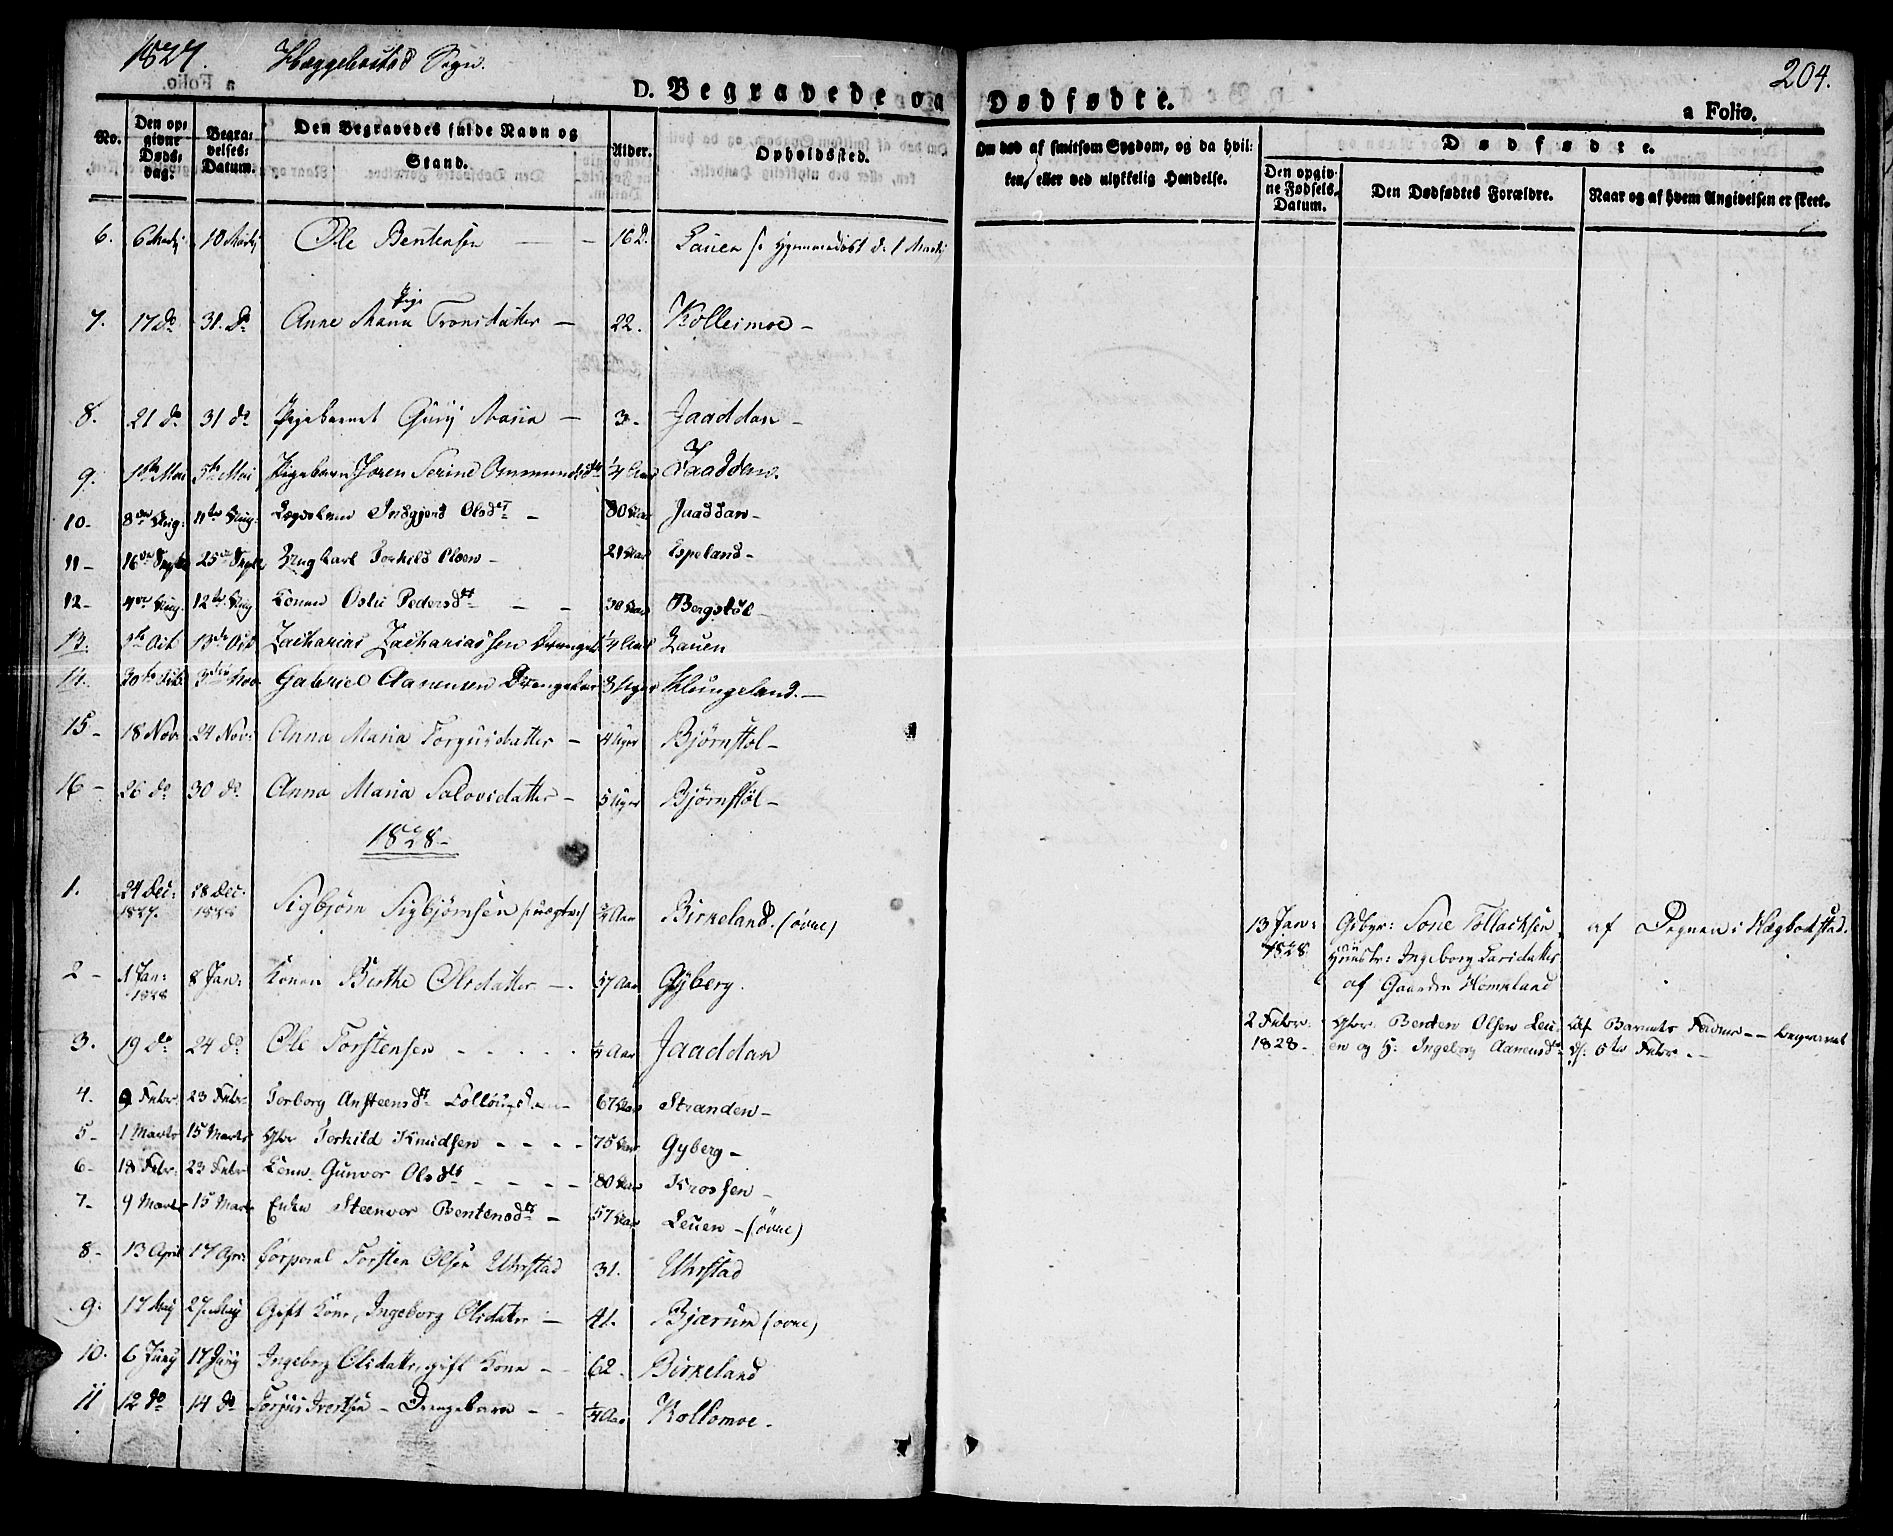 1827. Hæggebostad Sogn.
204.
D. Begravede og Dødfødte.
a Folio.
No.
Den opgivne Døds-dag:
Begravelses-Datum.
Den Begravedes fulde Navn og Stand.
Alder.
Opholdssted.
Om død af smitsom Sygdom, og da hvilken, eller ved ulykkelig Hændelse.
Dødfødte.
Den opgivne Fødsels-Datum.
Den Dødfødtes Forældre.
Naar og af hvem Angivelsen er skeet.
6. 6 Martj 10 Martj Ole Bentensen — 16 D. Lauen (: hjemmedøbt d. 1 Martj
7. 17 do 31. do Anne Maria Tronsdatter — 22. Kolleimoe —
Pige
8. 21 do 31 do Pigebarnet Gurij Maria — 3 - Jaaddan —
9. 1ste Mai 5te Mai Pigebarn Joren Serine Ommundsdtr 1/4 Aar Jaaddan.
10 - 8de Aug: 11te Aug: Inggjerd Olsdt — 80 Aar Jaaddan —
11 - 16de Septb 25de Septb Ungkarl Torkild Olsen — 21 Aar Espeland —
12 - 4de Aug. 12te Aug Konen Osle Pedersdt — — 30 Aar Bergstøl —
13. 9de Oct 13de Oct Zacharias Zachariassen 1/4 Aar Lauen
14. 30te Oct. 3die Nov. Gabriel Aanensen Drengebar 3 Uger Klungeland. —
15 - 18 Nov: 24 Nov: Anna Maria Torgusdatter — 4 Uger Bjørnstøl —
16 - 26 do 30 do Anna Maria Salovsdatter — 5 Uger Bjørnstøl —
1828 —
1. 24 Dec: 1827. 28 Dec: 1828 Sigbjørn Sigbjørnsen (: uægte:) 3/4 Aar Birkeland. (øvre)
13 Jan: 1828. Gdbgr: Sone Tollachsen,
Hustr: Ingeborg Larsdatter
af Gaarden Homkland
af Degnen i Hægbostad.
2 - 1 Jan: 1828 8 Jan: Konen Berthe Olsdatter — 57 Aar Gyberg.
3. 19 do 24 do Ole Torstensen - - - - 1/4 Aar Jaaddan
2 Febr: 1828 - Gbr. Benten Olsen Leu-
en og H: Ingeborg Aanensdt
Af Barnets Fader — begravet
d: 5te Febr. —
4. 9 Febr. 23 Febr. Torborg Ansteensdt — 67 Aar Stranden —
5 - 1 Marts 15 Marts Gbr Torkild Knudsen - - - - 75 Aar Gyberg —
6 - 18 Febr. 23 Febr. Kone Gunvor Olsdtr - - - - 80 Aar Krossen —
7 - 9 Marts 15 Marts Enke Steenvor Bentensdt — 57 Aar Leuen — (øvre)
8 - 13 April 17 Apr: Corporal Torsten Olsen Uhrstad 31. Uhrstad
9. 17 May 27. May Gift Kone, Ingeborg Olsdatter — 41. Bjærum (øvre)
10. 6 Juny 17 Juny Ingeborg Olsdatter, gift Kone — 62. Birkeland
11 12 do 14 do Torjus Ivertsen — Drengebarn — 1/4 Aar Kollemoe.